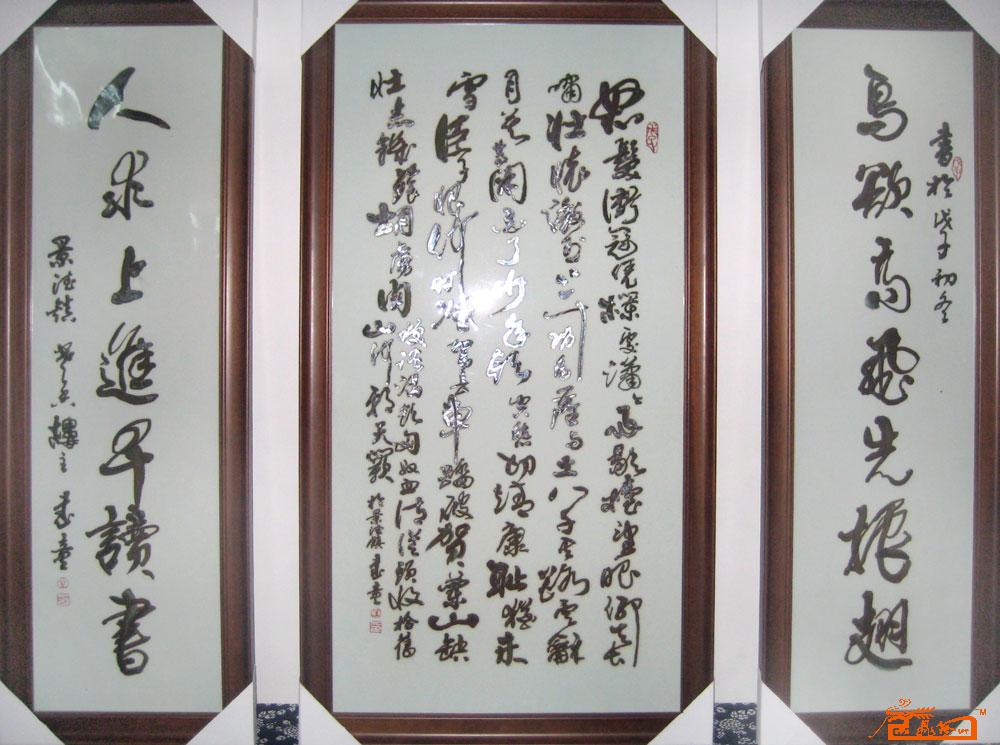 書於戊子初冬
鳥欲高飛先振翅
怒髮衝冠凭欄處瀟瀟雨歇擡望眼仰天長
嘯壯懷激烈三十功名塵与土八千里路雲和
月莫等閑白了少年頭空悲切靖康恥猶未
雪臣子恨何時滅駕長車踏破賀蘭山缺
壯志飢餐胡虜肉笑談渴飲匈奴血待從頭收拾舊
山河朝天闕於景德鎮
人求上進早讀書
景德鎮樓主